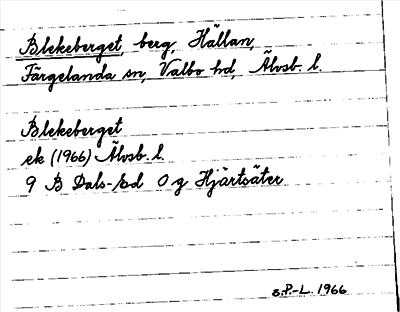 Blekeberget, berg, Hällan,
Färgelanda sn, Valbo hd, Älvsb. l.
Blekeberget
ek (1966) Älvsb. l.
9 B Dals-Ed O g Hjärtsäter
S.P.-L. 1966